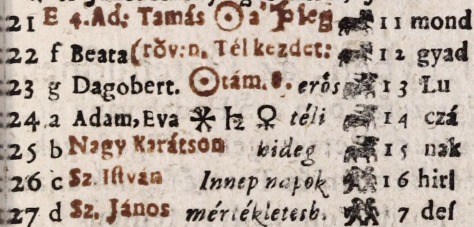 21 E 4. Ad: Tamás ☉ a' 11 mond
22 f Beata (röv: n. Tél kezdet: 12 gyad
23 g Dagobert. ☉ tám. 8. erős 13 Lu
24 a Adam, Eva ♄ ♀ téli 14 czá
25 b Nagy Karátson hideg 15 nak
26 c Sz. Iſtván Innep napok 16 hirl
27 d Sz. János mértékletesb. 7 deſ